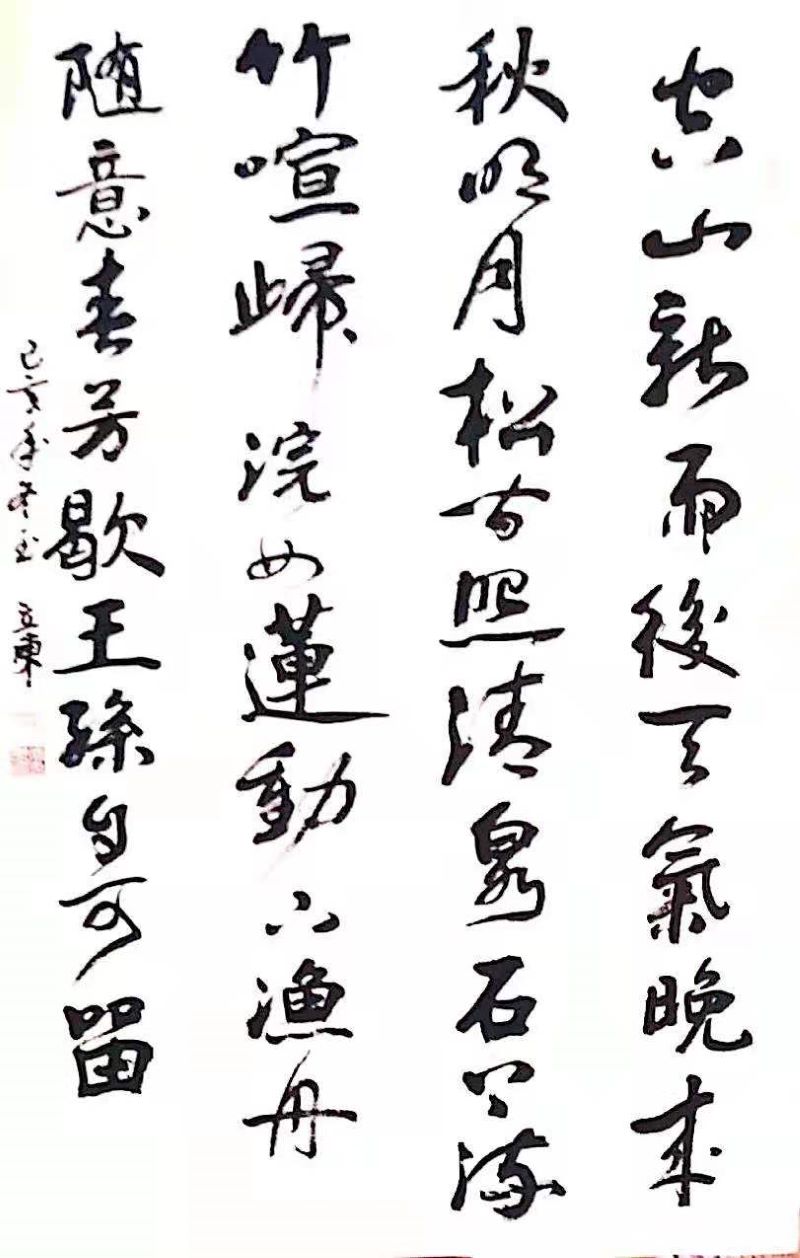 空山新雨後天氣晚來
秋明月松間照清泉石上流
竹喧歸浣女蓮動下漁舟
随意春芳歇王孫自可留
己亥年冬玉立東